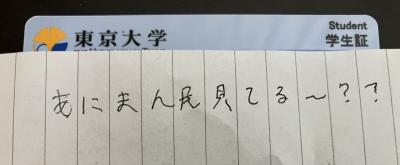 東京大学
Student
学生証
あにまん民見てる〜??